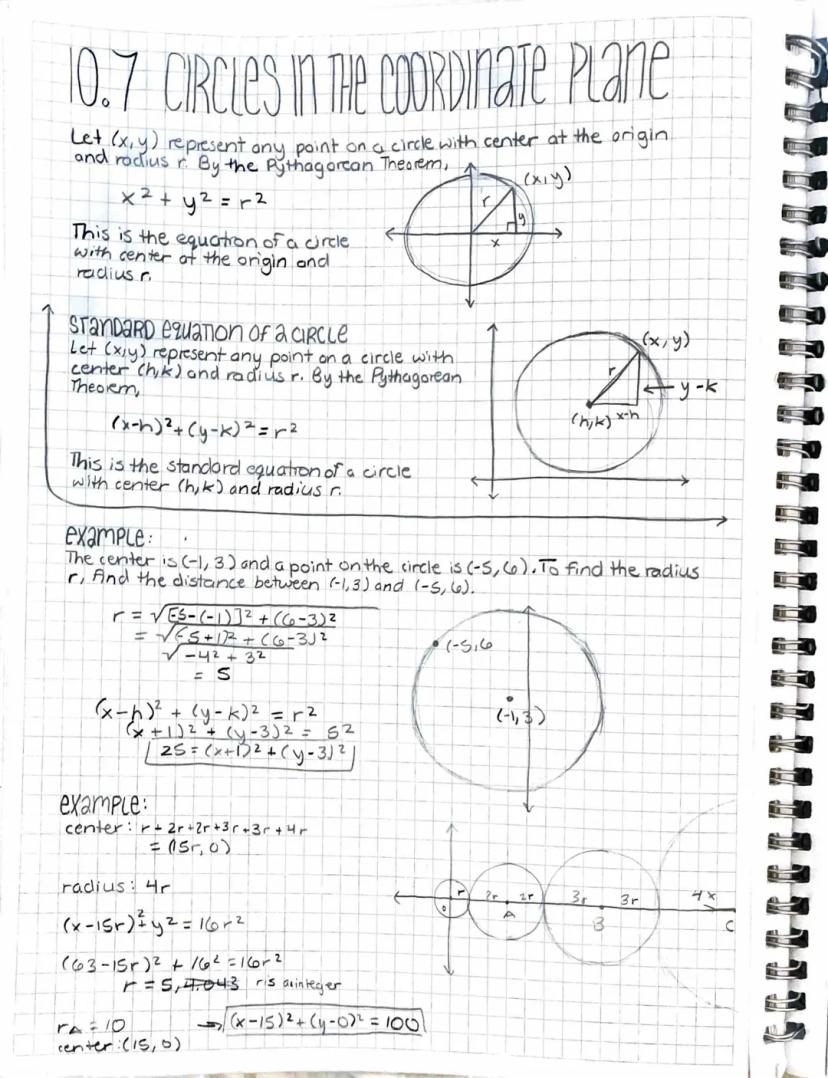 10.7 CIRCLES IN THE COORDINATE PLANE
Let (x,y) represent any point on a circle with center at the origin
and radius r. By the Pythagorean Theorem,
x² + y² = r²
This is the equation of a circle
with center at the origin and
radius r.
(x,y)
r
y
x
STANDARD EQUATION OF A CIRCLE
Let (x,y) represent any point on a circle with
center (h,k) and radius r. By the Pythagorean
Theorem,
(x-h)²+(y-k)²=r²
This is the standard equation of a circle
with center (h,k) and radius r.
(x,y)
r
y-k
(h,k) x-h
example:
The center is (-1,3) and a point on the circle is (-5,6). To find the radius
r, find the distance between (-1,3) and (-5,6).
r = √[-5-(-1)]² + (6-3)²
= √(-5+1)² + (6-3)²
√-4² + 3²
= 5
(x-h)² + (y-k)² = r²
(x+1)² + (y-3)² = 5²
25 = (x+1)² + (y-3)²
(-5,6
(-1,3)
example:
center: r+2r+2r+3r+3r+4r
= (15r, 0)
radius: 4r
(x-15r)²+y²=16r²
(63-15r)² + 16² = 16r²
r = 5, 4.043 r is an integer
rA = 10
center: (15, 0)
→ (x-15)²+(y-0)² = 100
r 2r 2r 3r 3r 4x
0 A B C